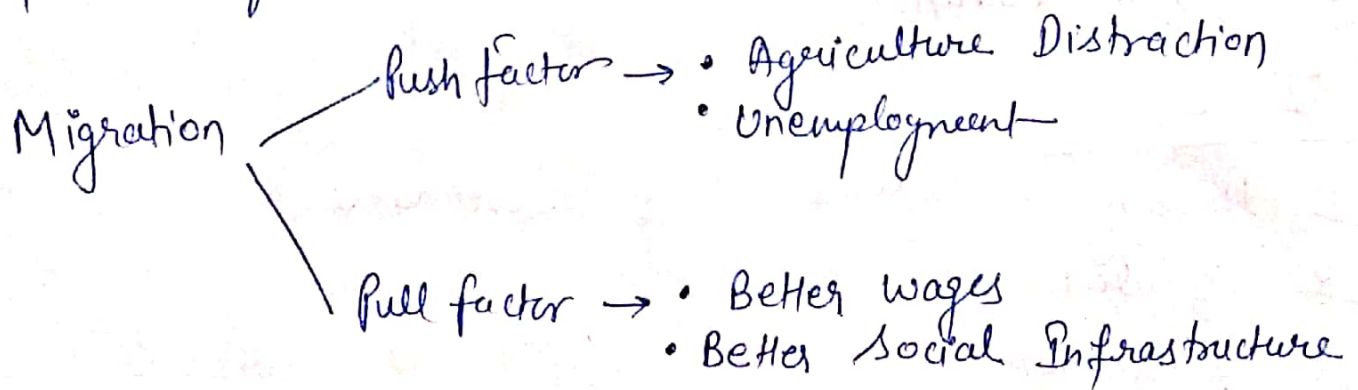 Push factor → • Agriculture Distraction
• Unemployment
Migration
Pull factor → • Better wages
• Better Social Infrastructure